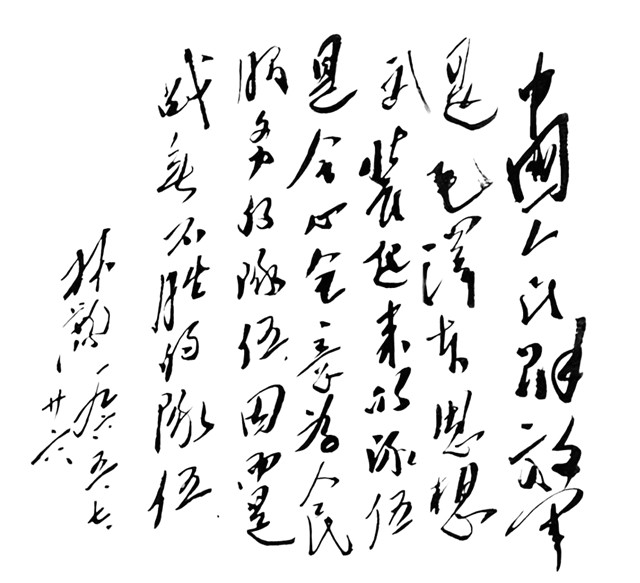 中國人民解放军
是毛澤东思想
武装起来的隊伍
是全心全意为人民
服务的隊伍因而是
战無不胜的隊伍
林彪 一九六五.七.
廿六